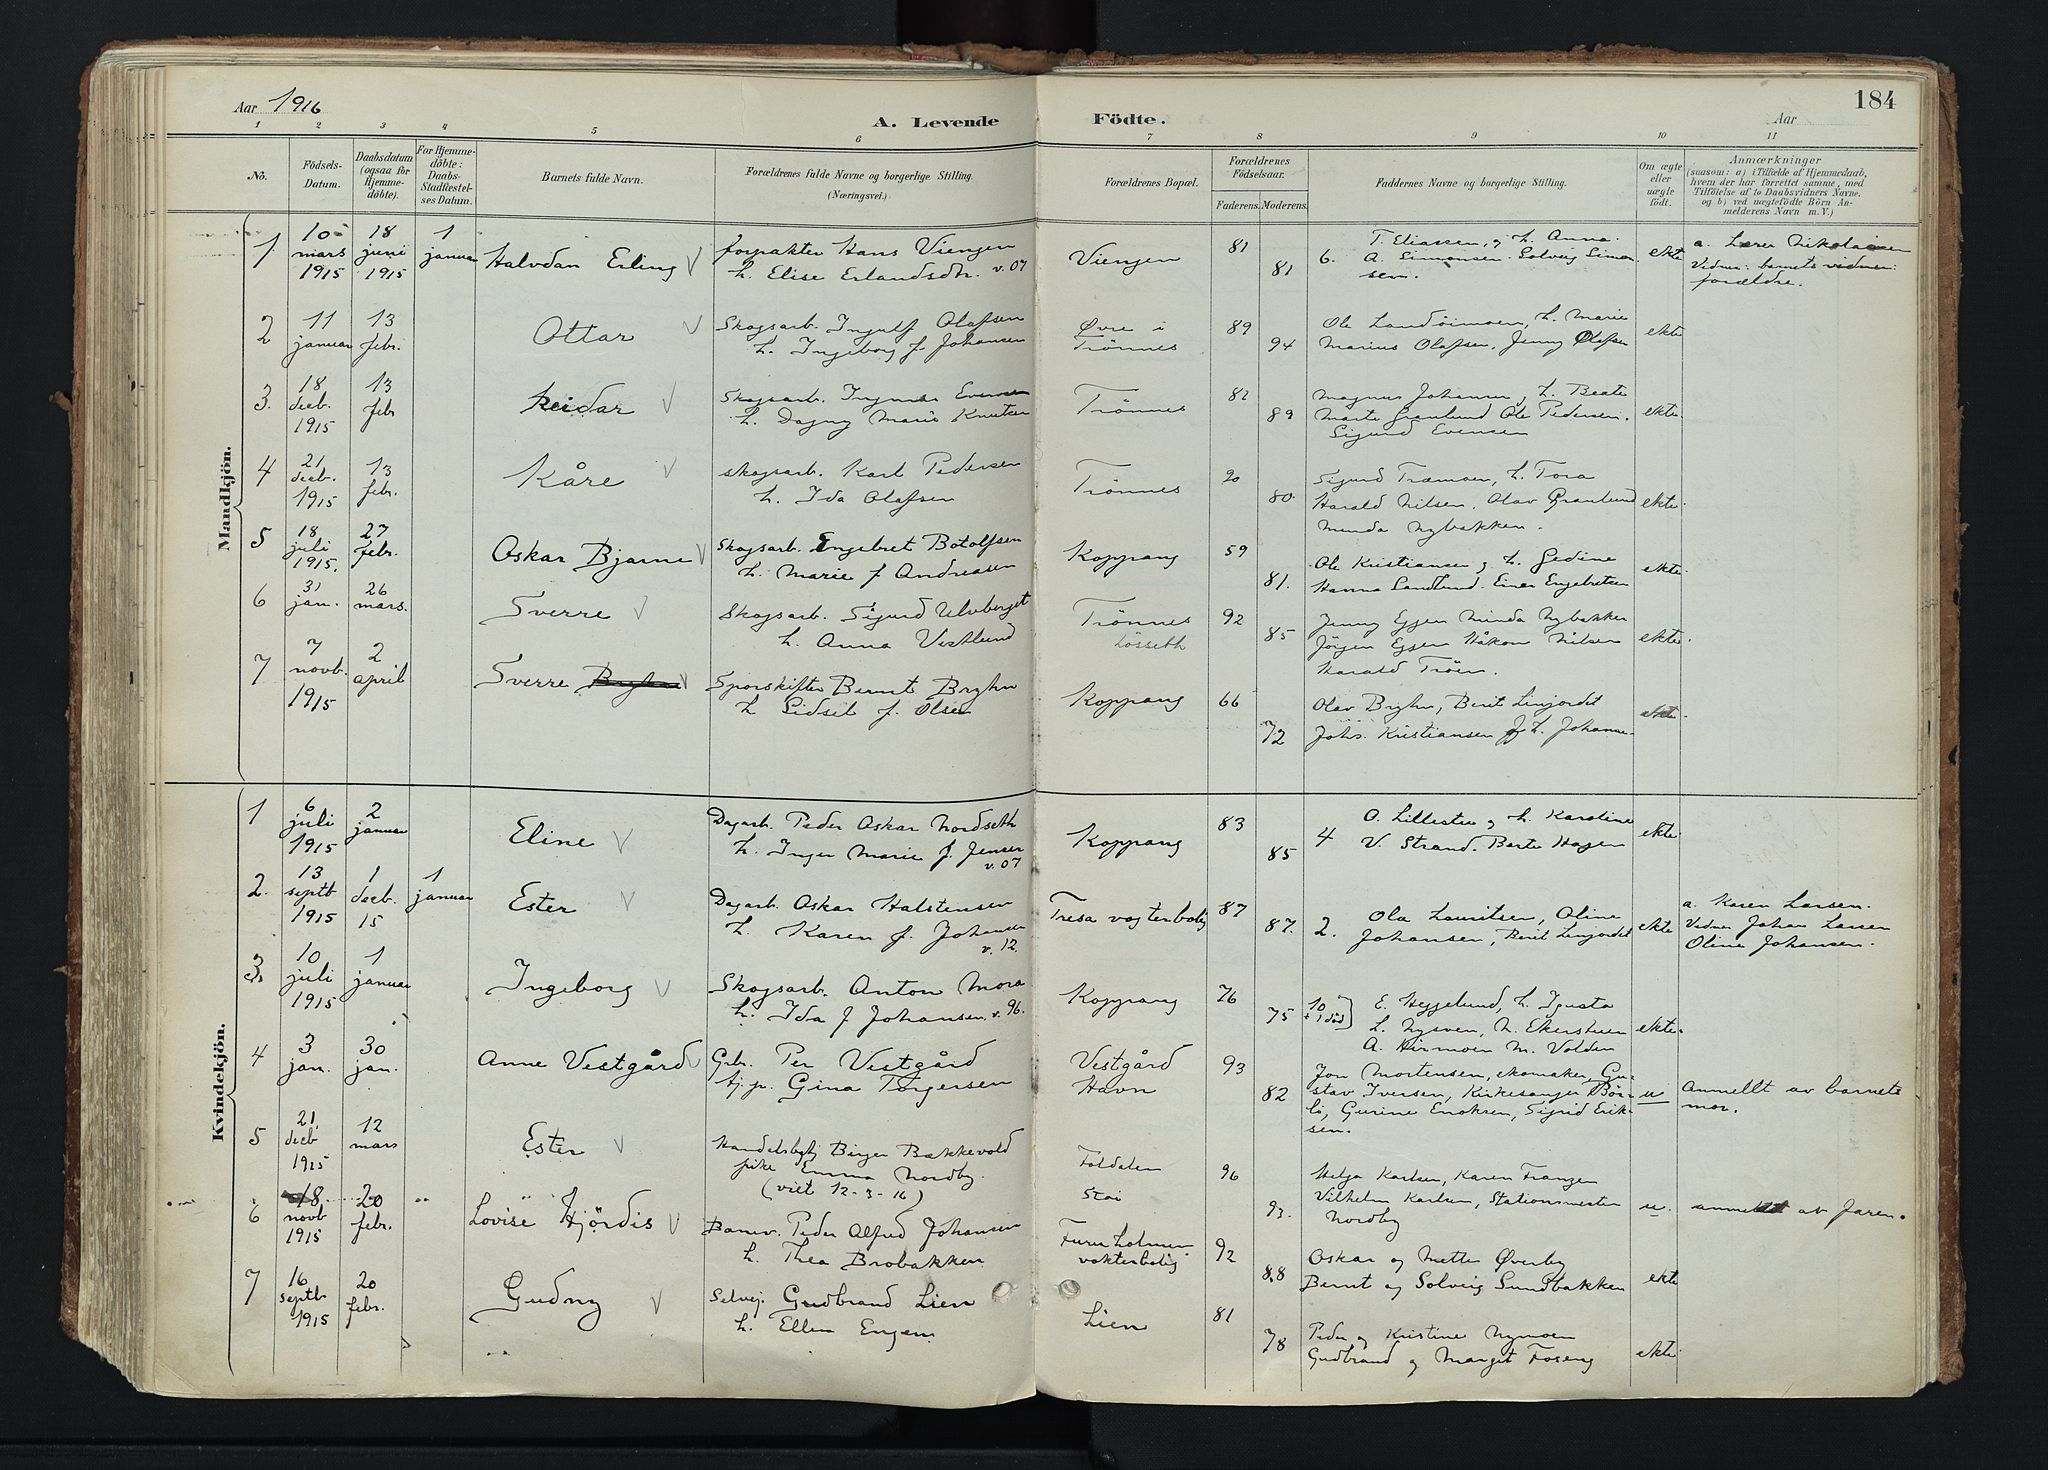 Aar 1916
A. Levende Födte.
Aar
184
1 2 3 4 5 6 7 8 9 10 11
No.
Födsels-
Datum.
Daabsdatum
(ogsaa for
Hjemme-
döbte).
For Hjemme-
döbte:
Daabs-
Stadfæstel-
ses Datum.
Barnets fulde Navn.
Forældrenes fulde Navne og borgerlige Stilling.
(Næringsvei.)
Forældrenes Bopæl.
Forældrenes
Födselsaar.
Faderens. Moderens.
Faddernes Navne og borgerlige Stilling.
Om ægte
eller
uægte
födt.
Anmærkninger
(saasom: a) i Tilfælde af Hjemmedaab,
hvem der har forrettet samme, med
Tilföielse af to Daabsvidners Navne.
og b) ved uægtefödte Börn An-
melderens Navn m. V.)
Mandkjön.
1. 10 mars 1915 18 juni 1915 1 januar Halvdan Erling
forpakter Hans Viengen
h. Elise Erlandsdtr. v. 07
Viengen 81 81 6.
T. Eliassen, og h. Anna.
A. Simonsen. Solveig Simon
sen.
ekte
a. Lærer Nikolaisen
Vidner: barnets
forældre.
2 11 januar 13 febr. Ottar
Skogsarb. Ingulf Olafsen
h. Ingeborg f. Johansen
Øvre i
Trönnes 89 94
Ole Landöimoen, h. Marie
Marius Olafsen, Jenny Olafsen
ekte
3. 18 decb. 1915 13 febr Reidar
Skogsarb. Ingmar Evensen
h. Dagny Marie Knutsen
Trönnes 82 89
Magnus Johansen, h. Beate
Marte Granlund Ole Pedersen.
Sigurd Evensen
ekte.
4 21 decb. 1915 13 febr. Kåre
skogsarb. Karl Pedersen
h. Ida Olafsen
Trönnes 90 80.
Sigurd Træmoen, h. Tora
Harald Nilsen. Olav Granlund
Minda Nybakken.
ekte.
5 18 juli 1915. 27 febr. Oskar Bjarne
Skogsarb. Engebret Botolfsen
h. Marie f Andreasen
Koppang 59 81.
Ole Kristiansen og h. Gedine
Hanna Sandlund. Einar Engebretsen
ekte.
6 31 jan. 26 mars. Sverre
Skogsarb. Sigurd Ulvberget
h. Anna Vestlund
Trönnes
Lösseth 92 85
Jenny Eggen Minda Nybakken
Jörgen Eggen Håkon Nilsen
Harald Tröen.
ekte.
7 7 novb. 1915 2 april Sverre Bryhn
Sporskifter Bernt Bryhn
h Sidsel f. Olsen
Koppang 66 72
Olav Bryhn, Berit Linjordet
Johs. Kristiansen og h. Johanne.
ekte.
Kvindekjön.
1 6 juli 1915 2 januar Eline
Dagarb. Peder Oskar Nordseth
h. Inger Marie f. Jensen
v. 07
Koppang 83 85 4
O. Lillestu og h. Karoline
V. Strand. Berte Hagen
ekte
2. 13 septb 1915 1 decb. 15 1 januar Ester
Dagarb. Oskar Halstensen
h. Karen f. Johansen
v. 12.
Tresa vogterbolig 87 87. 2.
Ola Lauritsen, Oline
Johansen, Berit Linjordet
ekte
a. Karen Larsen.
Vidner Johan Larsen
Oline Johansen.
3. 10 juli 1915 1 januar Ingeborg
Skogsarb. Anton Mora
h. Ida f Johansen. v. 96.
Koppang 76 75 10
+ 1 död
E. Heggelund, h. Igusta
L. Nysven, N. Ekerstuen
A. Hirmoen M. Volden
ekte.
4 3 jan. 30 jan. Anne Vestgård
Grbr. Per Vestgård
tj.p. Gina Torgersen
Vestgård
Havn 93 82
Jon Mortensen, skomaker, Gu-
stav Iversen, Kirkesanger Bör-
li, Gurine Enoksen, Sigrid Erik-
sen.
u
Anmellt av barnets
mor.
5 21. decb 1915 12 mars Ester
Handelsbetj Birger Bækkevold
pike Emma Nordby.
(viet 12-3-16)
Foldalen
Stai 96 93.
Helga Karlsen, Karen Franzen
Vilhelm Karlsen, Stationsmester
Nordby
u.
anmeldt av Faren.
6 18. novb 1915 20 febr. " Lovise Hjördis
Banev. Peder Alfred Johansen
h. Thea Brobakken
Furuholmen
vokterbolig 92 88
Oskar og Mette Øverby
Bernt og Solveig Sundbakken
ekte
7 16 septbr 1915 20 febr. Gudny
Selvej. Gudbrand Lien
h. Ellen Engen
Lien 81 78
Peder og Kristine Nymoen
Gudbrand og Marget Foseng
ekte